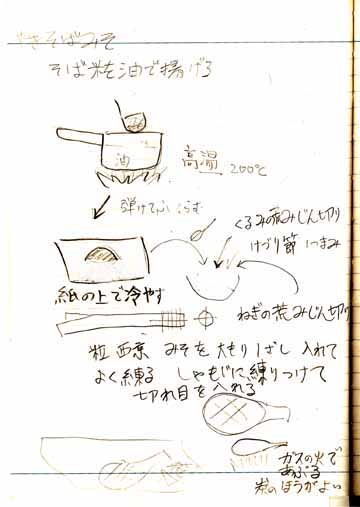 やきそばみそ
そば米を油で揚げる
油
高温
200℃
弾けてふくらむ
くるみの荒みじん切り
けずり節 1つまみ
紙の上で冷やす
ねぎの荒みじん切り
粒 西京 みそを大もり1さじ 入れて
よく練る しゃもじに練りつけて
切れ目を入れる
ガスの火で
あぶる
炭のほうがよい